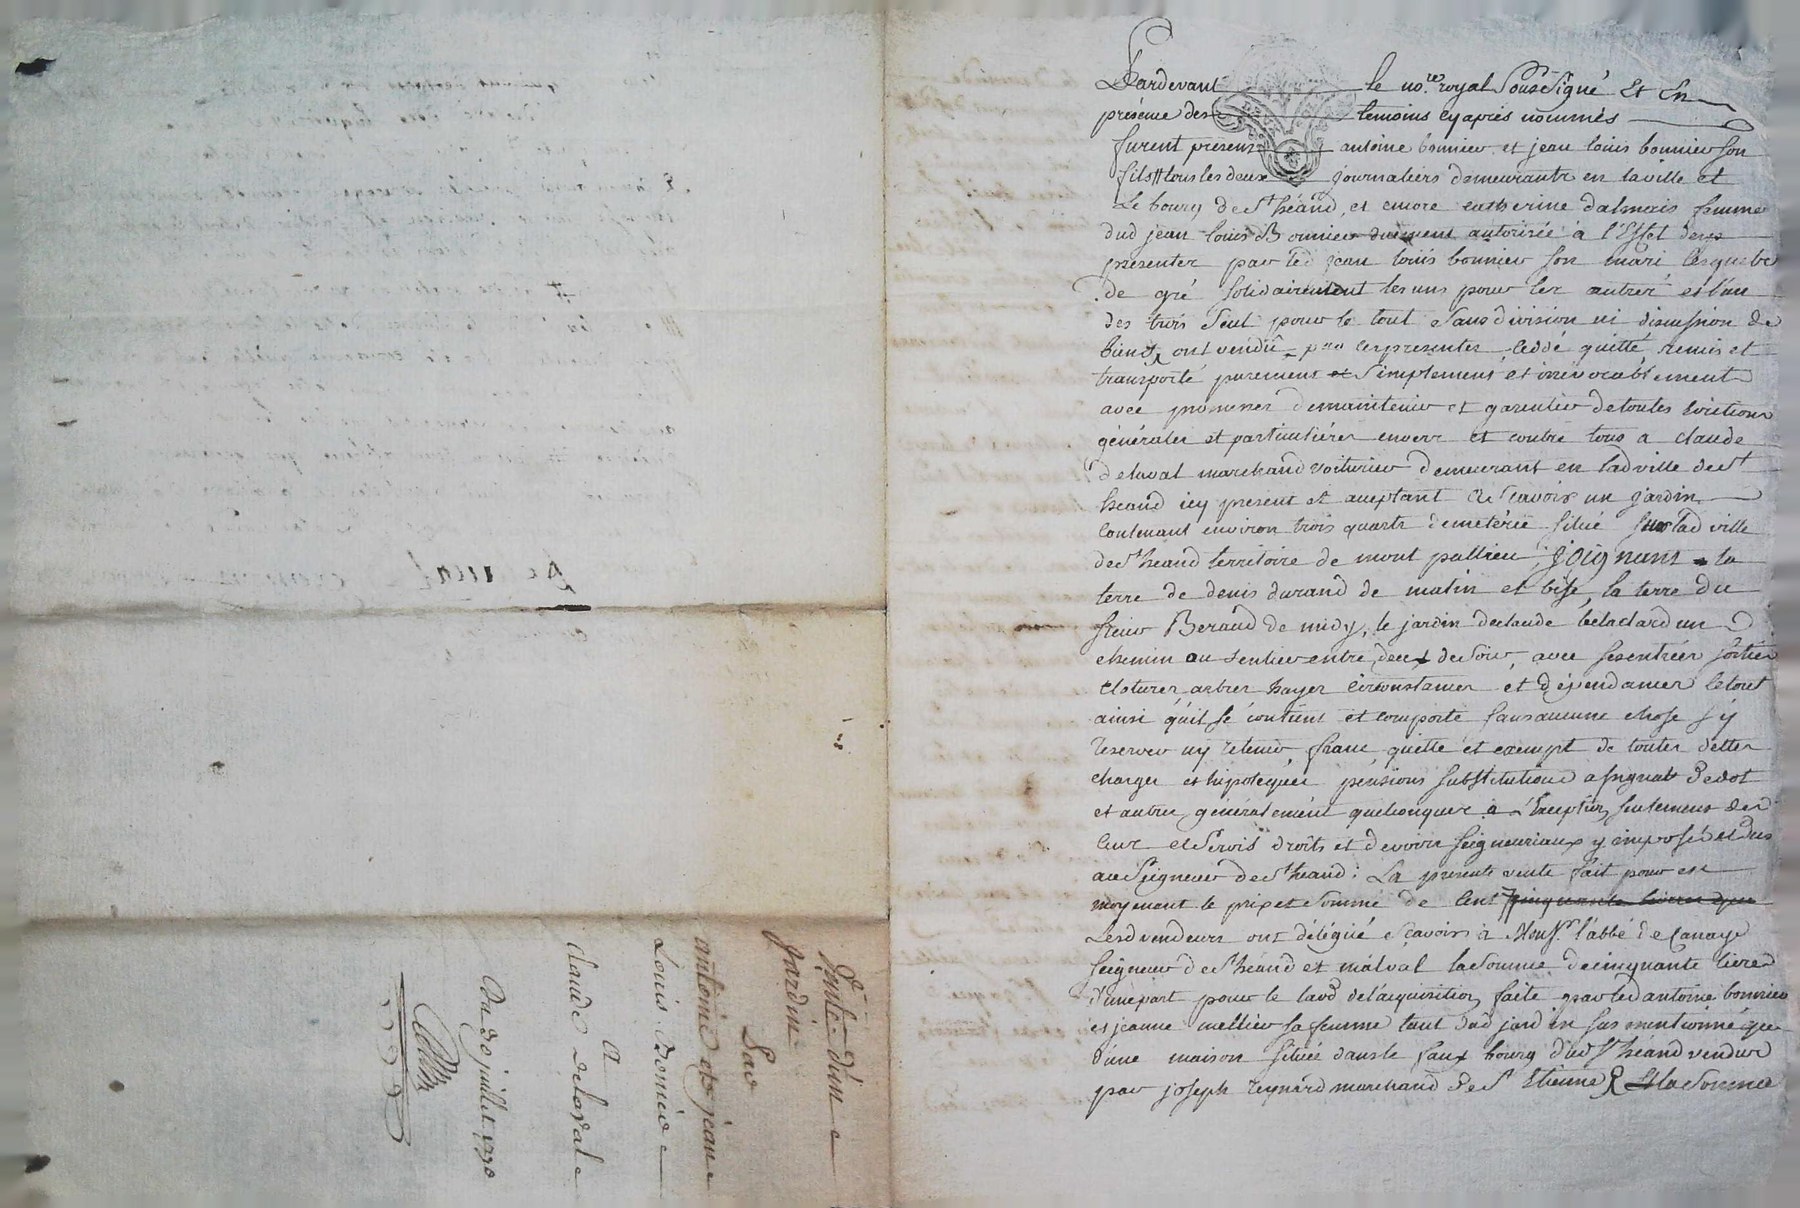 Pardevant le no.re royal Soussigné Et En
présence des temoins cy après nommés
furent presens antoine bonnier et jean louis bonnier son
fils # tous les deux journaliers demeurants en la ville et
Le bourg de St héand, et encore catherine dalmais femme
dud jean louis Bonnier duement autorisée a l'Effet des
présenter par led jean louis bonnier son mari lesquels
de gré solidairement les uns pour les autres et l'un
des trois seul pour le tout sans division ni discussion de
biens, ont vendu par ces presentes, ceddé quitté, remis et
transporté purement et simplement et irrévocablement
avec promesse de maintenir et garentir de toutes évictions
générales et particulières envers et contre tous a claude
delaval marchand voiturier demeurant en lad ville de St
heand icy present et aceptant Scavoir un jardin
contenant environ trois quarts de meterée situé sur lad ville
de St heand territoire de mont pallieu, joignant la
terre de denis durand de matin et bise, la terre du
sieur Beraud de midy, le jardin de claude un
chemin ou sentier entre deux de soir, avec ses entrées sorties
clotures arbres hayes circonstances et dépendances le tout
ainsi qu'il se contient et comporte sans aucune chose s'y
reserver ny retenir, franc, quitte et exempt de toutes dettes
charges et hipoteques pensions substitutions de dot
et autres généralement quelconques a l'Exception seulement des
cens et servis droits et devoirs seigneuriaux y imposés et dus
au Seigneur de St héand; La presente vente fait pour et
moyenant le prix et somme de cent cinquante livres que
Lesd vendeurs ont délégué Scavoir a Mons.r l'abbé de Canaye
seigneur de St héand et malval la somme de cinquante livres
d'une part pour le laod de l'acquisition faite par led antoine bonnier
et jeanne mellier sa femme tant dud jardin sus mentionné que
d'une maison située dans le faux bourg dud St héand vendus
par joseph reynard marchand de St Etienne & la Somme
Vente d'un
jardin
Par
antoine et jean
Louis Bonnier
a
claude delaval
Du 30 juillet 1770